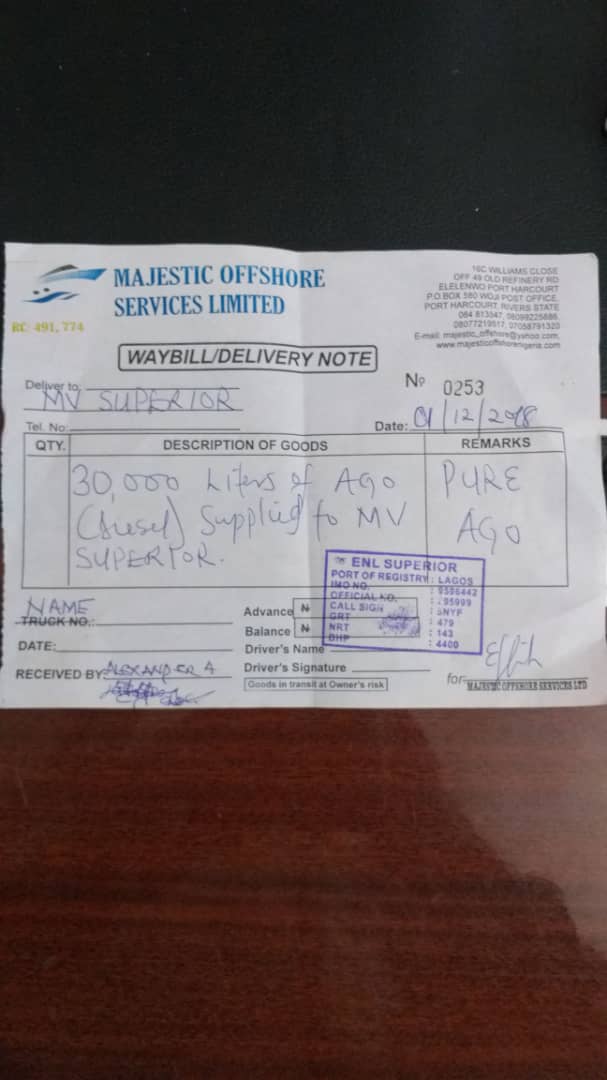 MAJESTIC OFFSHORE
SERVICES LIMITED
RC: 491, 774
16C WILLIAMS CLOSE
OFF 49 OLD REFINERY RD
ELELENWO PORT HARCOURT
P.O.BOX 580 WOJI POST OFFICE,
PORT HARCOURT, RIVERS STATE
084 813347, 08099225886,
08077219517, 07058791320
E-mail: majestic_offshore@yahoo.com,
www.majesticoffshorenigeria.com
WAYBILL/DELIVERY NOTE
Deliver to:
MV SUPERIOR
No 0253
Tel. No:
Date: 01/12/2018
QTY. DESCRIPTION OF GOODS REMARKS
30,000 Liters of AGO PURE
(diesel) Supplied to MV AGO
SUPERIOR.
ENL SUPERIOR
PORT OF REGISTRY : LAGOS
IMO NO. : 9596442
OFFICIAL NO. : 95999
CALL SIGN : 5NYF
GRT : 479
NRT : 143
BHP : 4400
NAME
TRUCK NO.:
Advance N
Balance N
DATE:
Driver's Name
RECEIVED BY: ALEXANDER A
Driver's Signature
Goods in transit at Owner's risk
for:
MAJESTIC OFFSHORE SERVICES LTD